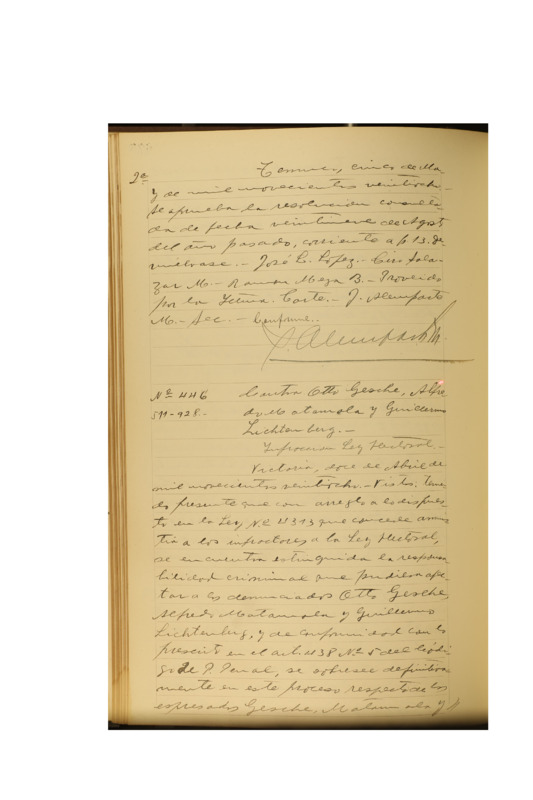 2a
Temuco, cinco de Ma
yo de mil novecientos veintiocho.-
Se aprueba la resolución consulta
da de fecha veintinueve de Agosto
del año pasado, corriente a f. 13. De
vuélvase.- José L. López.- Ciro Sala-
zar M.- Ramon Meza B.- Proveido
por la Iltma. Corte.- J. Alemparte
M.- Sec.- Conforme..
J. Alemparte M.
No 446
511-928.-
Contra Otto Gesche, Alfre
do Matamala y Guillermo
Lichtenberg.-
Infraccion Ley Electoral.-
Victoria, doce de Abril de
mil novecientos veintiocho.- Vistos: tenien
do presente que con arreglo a lo dispues-
to en la Ley No 4313 que concede amnis
tía a los infractores a la Ley Electoral,
se encuentra estinguida la responsa
bilidad criminal que pudiera afec-
tar a los denunciados Otto Gesche,
Alfredo Matamala y Guillermo
Lichtenberg, y de conformidad con lo
prescrito en el art. 438 No 5 del Códi
go de P. Penal, se sobresee definitiva
mente en este proceso respecto de los
espresados Gesche, Matamala y